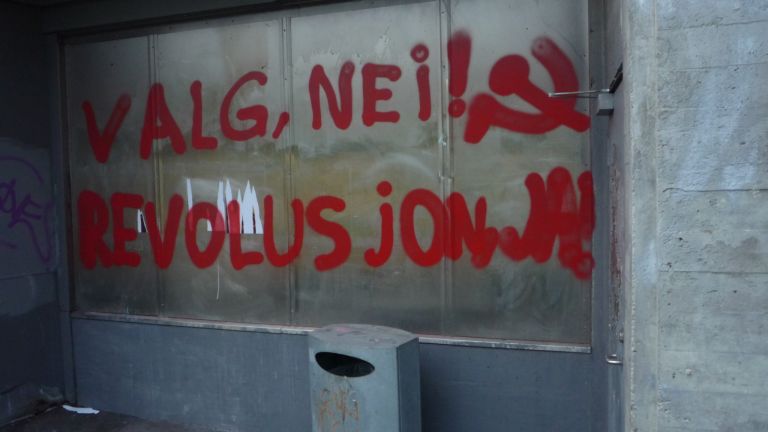 VALG, NEi!
REVOLUSjON, JA!